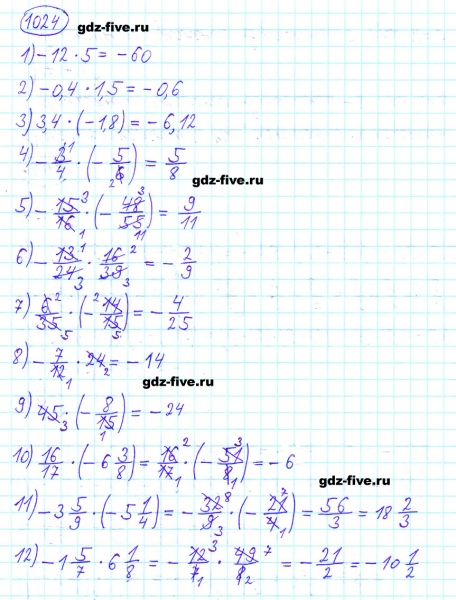 1024
gdz-five.ru
1) -12 · 5 = -60
2) -0,4 · 1,5 = -0,6
3) 3,4 · (-1,8) = -6,12
4) -3/4 · (-5/6) = 5/8
gdz-five.ru
5) -15/16 · (-48/55) = 9/11
6) -13/24 · 16/39 = -2/9
7) 6/35 · (-14/15) = -4/25
8) -7/12 · 24 = -14
gdz-five.ru
9) 45 · (-8/15) = -24
10) 16/17 · (-6 3/8) = 16/17 · (-51/8) = -6
gdz-five.ru
11) -3 5/9 · (-5 1/4) = -32/9 · (-21/4) = 56/3 = 18 2/3
12) -1 5/7 · 6 1/8 = -12/7 · 49/8 = -21/2 = -10 1/2